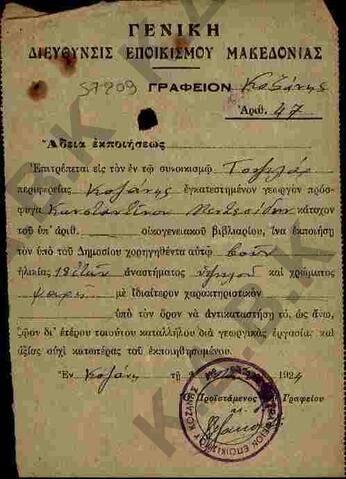 ΓΕΝΙΚΗ
ΔΙΕΥΘΥΝΣΙΣ ΕΠΟΙΚΙΣΜΟΥ ΜΑΚΕΔΟΝΙΑΣ
57209 ΓΡΑΦΕΙΟΝ Κοζάνης
Ἀριθ. 47
Ἄδεια ἐκποιήσεως
Ἐπιτρέπεται εἰς τὸν ἐν τῷ συνοικισμῷ
περιφερείας Κοζάνης ἐγκατεστημένον γεωργὸν πρόσ-
φυγα Κωνσταντῖνον κάτοχον
τοῦ ὑπ' ἀριθ. οἰκογενειακοῦ βιβλιαρίου, ἵνα ἐκποιήσῃ
τὸν ὑπὸ τοῦ Δημοσίου χορηγηθέντα αὐτῷ βοῦν
ἡλικίας 12 ἐτῶν ἀναστήματος ὑψηλοῦ καὶ χρώματος
μὲ ἰδιαίτερον χαρακτηριστικὸν
ὑπὸ τὸν ὅρον νὰ ἀντικαταστήσῃ τό, ὡς ἄνω,
ζῷον δι' ἑτέρου τοιούτου καταλλήλου διὰ γεωργικὰς ἐργασίας καὶ
ἀξίας οὐχὶ κατωτέρας τοῦ ἐκποιηθησομένου.
Ἐν Κοζάνῃ τῇ 1924
Προϊστάμενος Γραφείου
ΓΡΑΦΕΙΟΝ ΕΠΟΙΚΙΣΜΟΥ ΚΟΖΑΝΗΣ